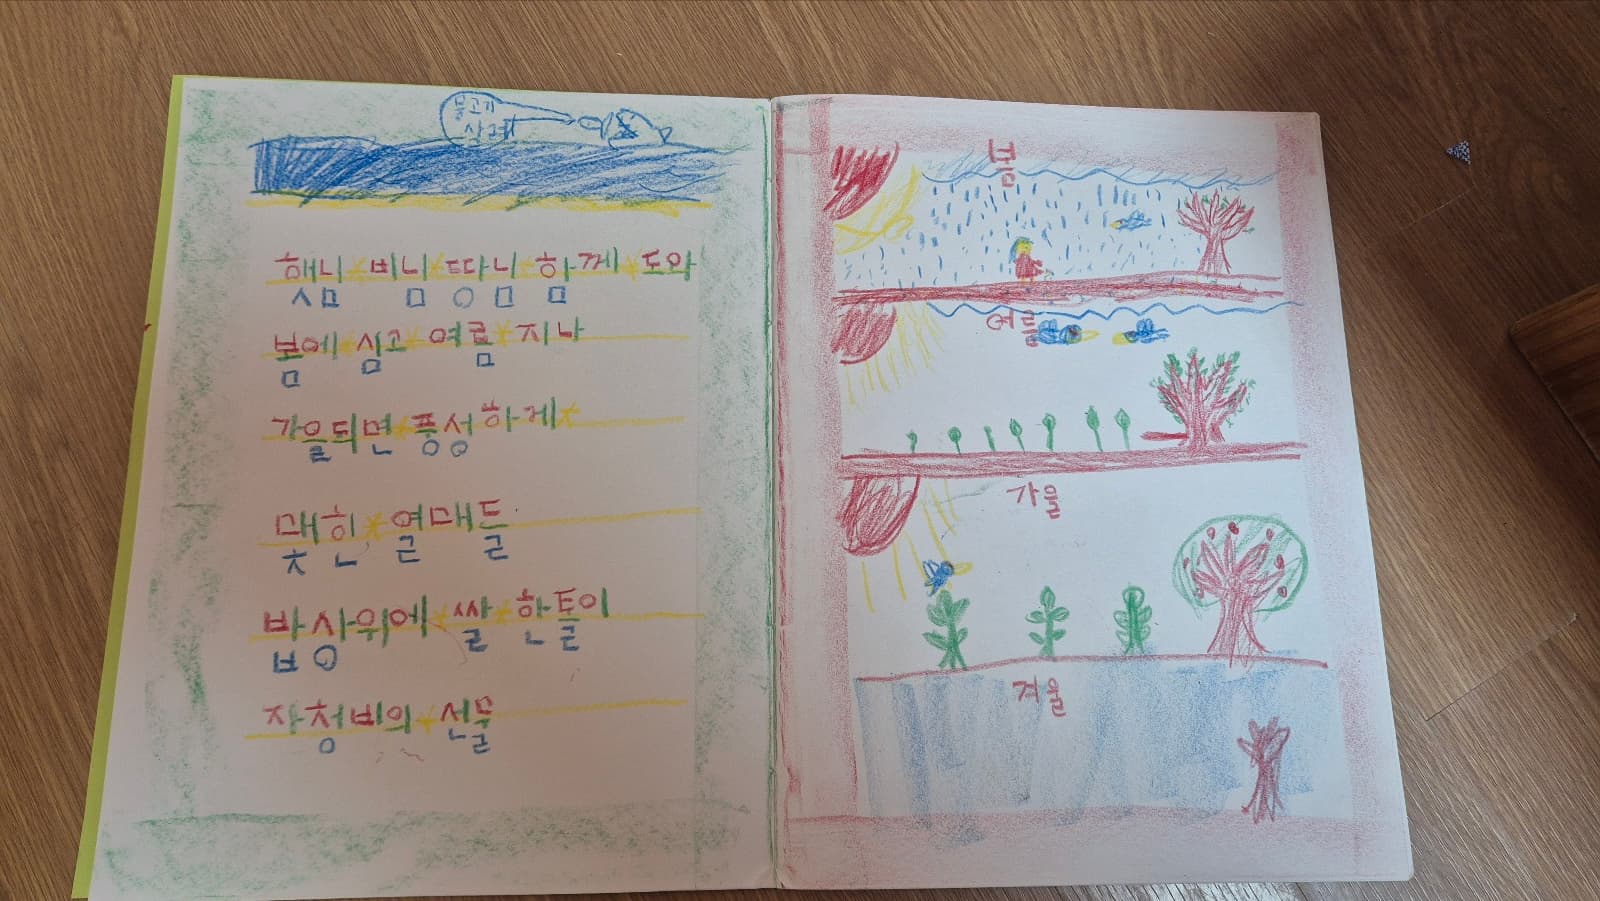 물고기
살려
햇님 비님 땅님 함께 도와
봄에 심고 여름 지나
가을되면 풍성하게
맺힌 열매들
밥상위에 쌀 한톨이
자청비의 선물
봄
여름
가을
겨울